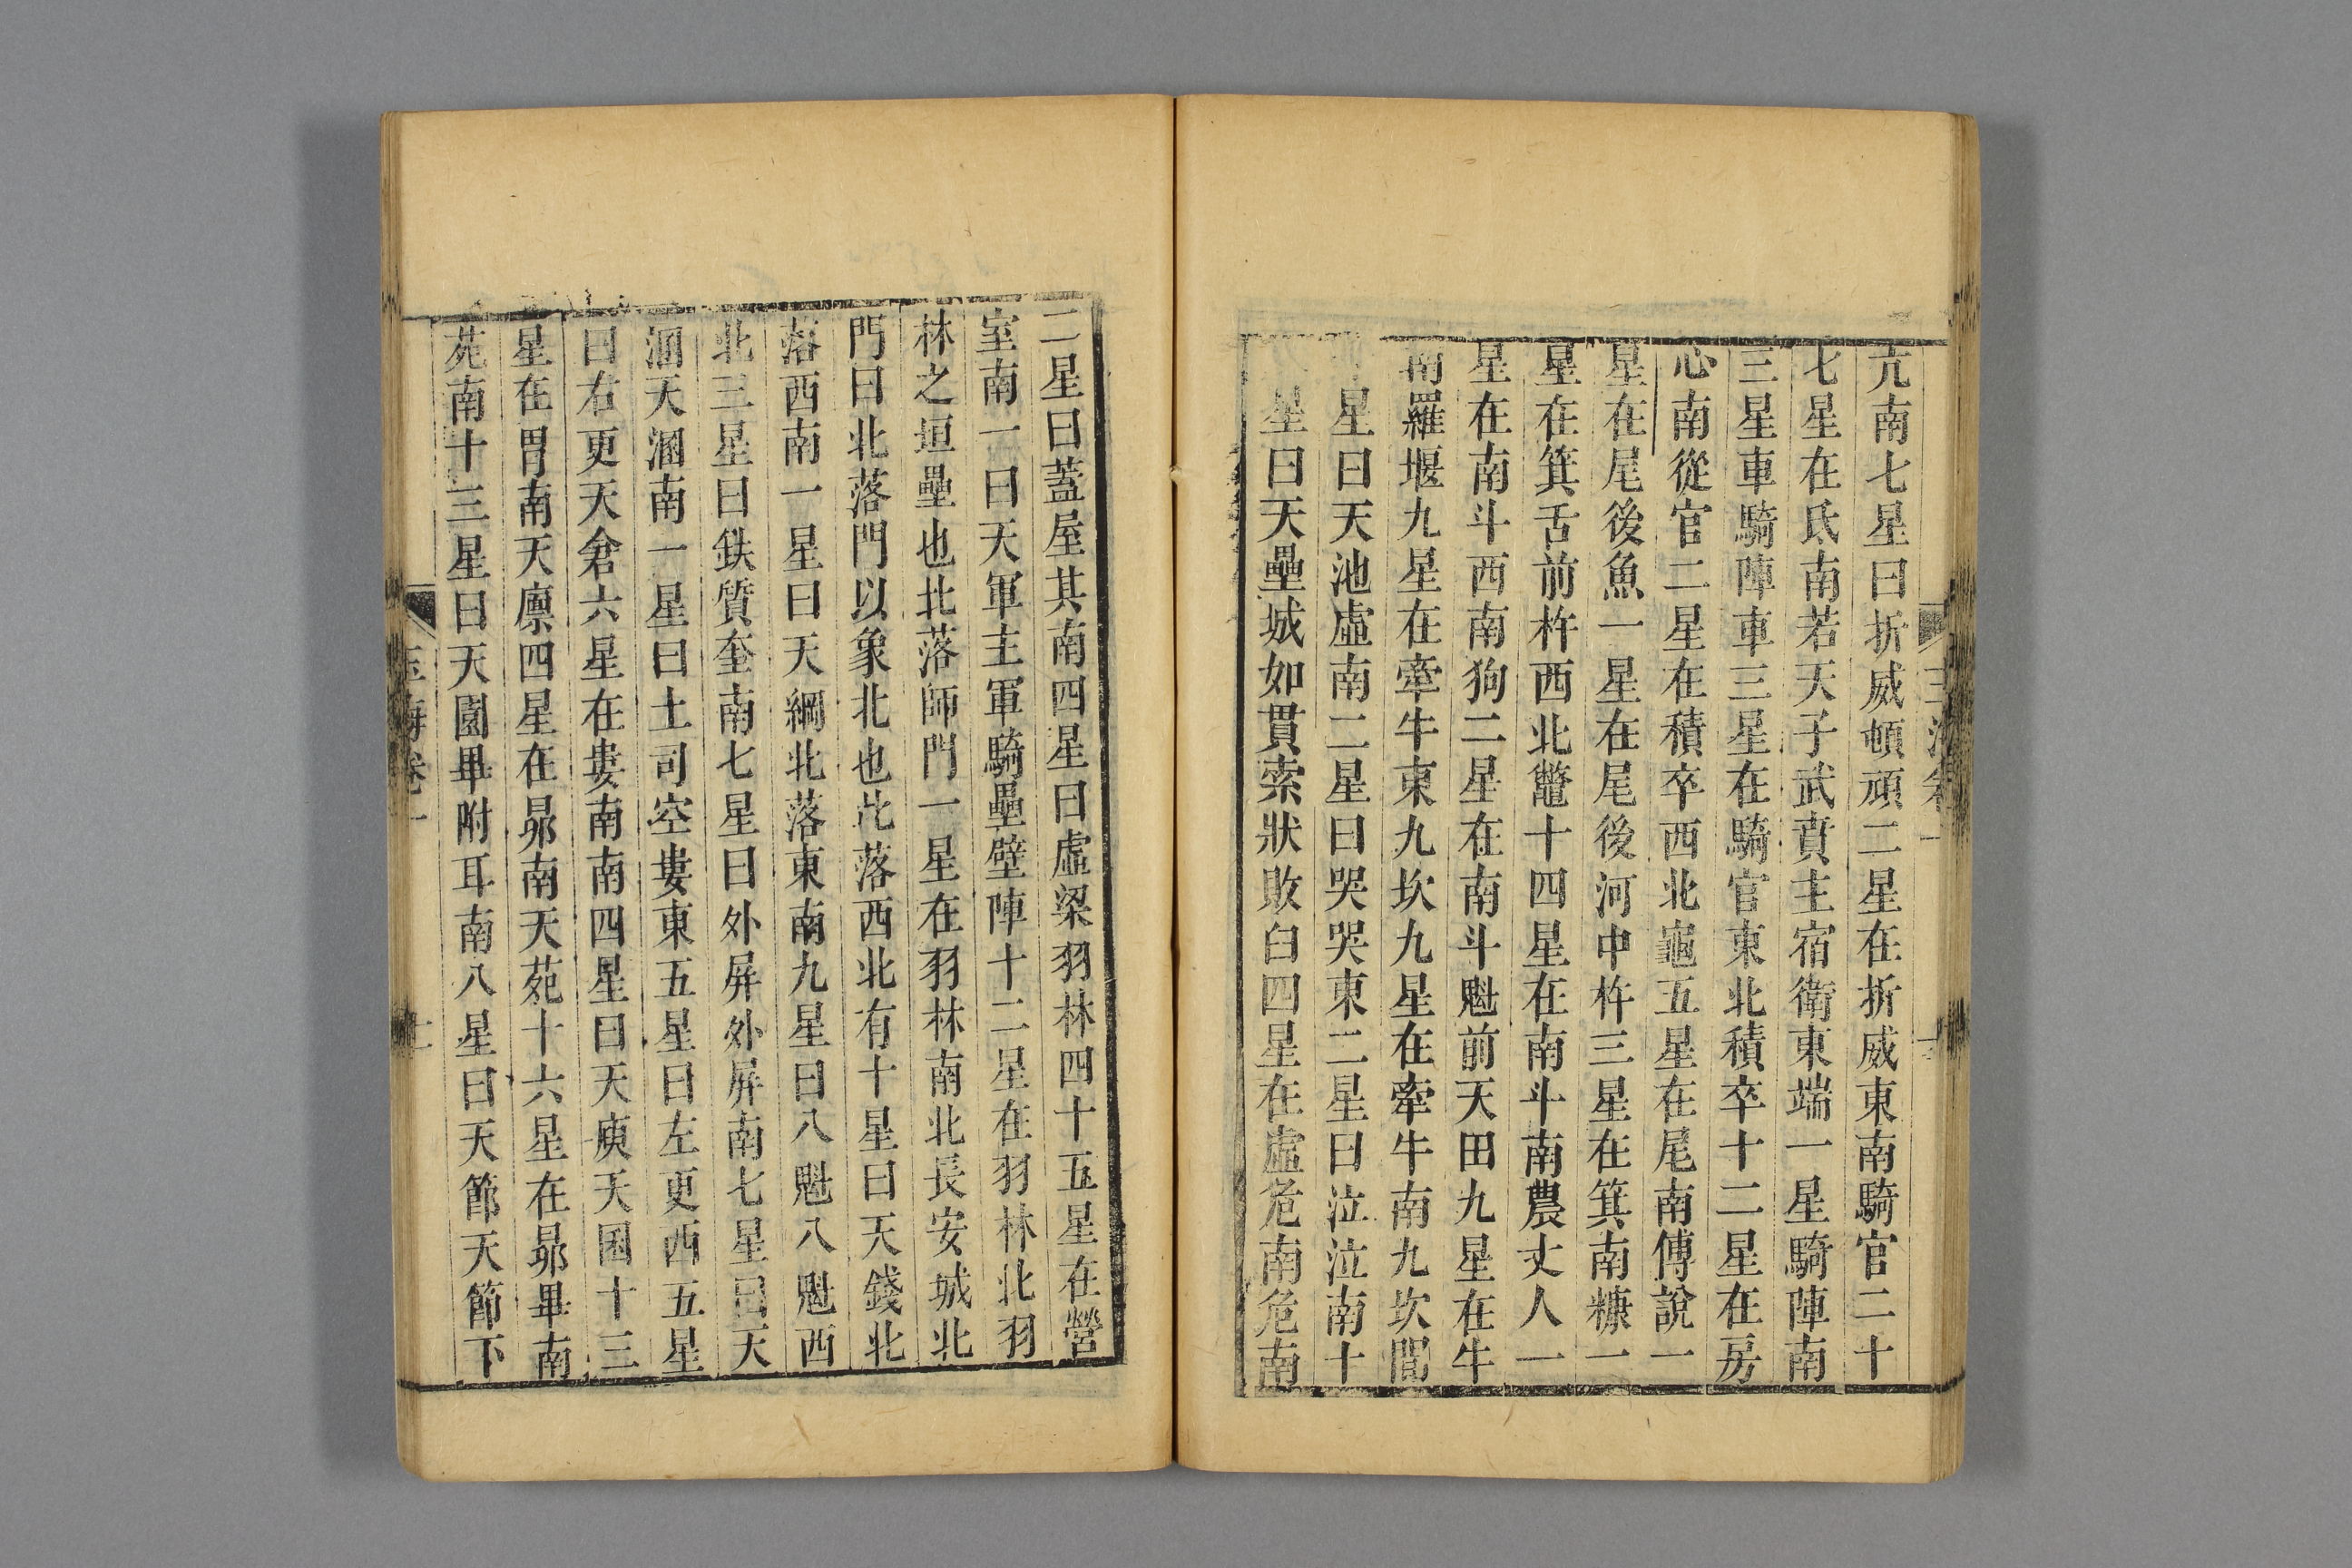 亢南七星曰折威頓頑二星在折威東南騎官二十
七星在氐南若天子武賁主宿衛東端一星騎陣南
三星車騎陣車三星在騎官東北積卒十二星在房
心南從官二星在積卒西北龜五星在尾南傅說一
星在尾後魚一星在尾後河中杵三星在箕南糠一
星在箕舌前杵西北鼈十四星在南斗南農丈人一
星在南斗西南狗二星在南斗魁前天田九星在牛
南羅堰九星在牽牛東九坎九星在牽牛南九坎間
星曰天池虛南二星曰哭哭東二星曰泣泣南十
星曰天壘城如貫索狀敗臼四星在虛危南危南
二星曰蓋屋其南四星曰虛梁羽林四十五星在營
室南一曰天軍主軍騎壘壁陣十二星在羽林北羽
林之垣壘也北落師門一星在羽林南北長安城北
門曰北落門以象北也北落西北有十星曰天錢北
落西南一星曰天綱北落東南九星曰八魁八魁西
北三星曰鈇質奎南七星曰外屏外屏南七星曰天
溷天溷南一星曰土司空婁東五星曰左更西五星
曰右更天倉六星在婁南南四星曰天庾天囷十三
星在胃南天廩四星在昴南天苑十六星在昴畢南
苑南十三星曰天園畢附耳南八星曰天節天節下
玉海卷一